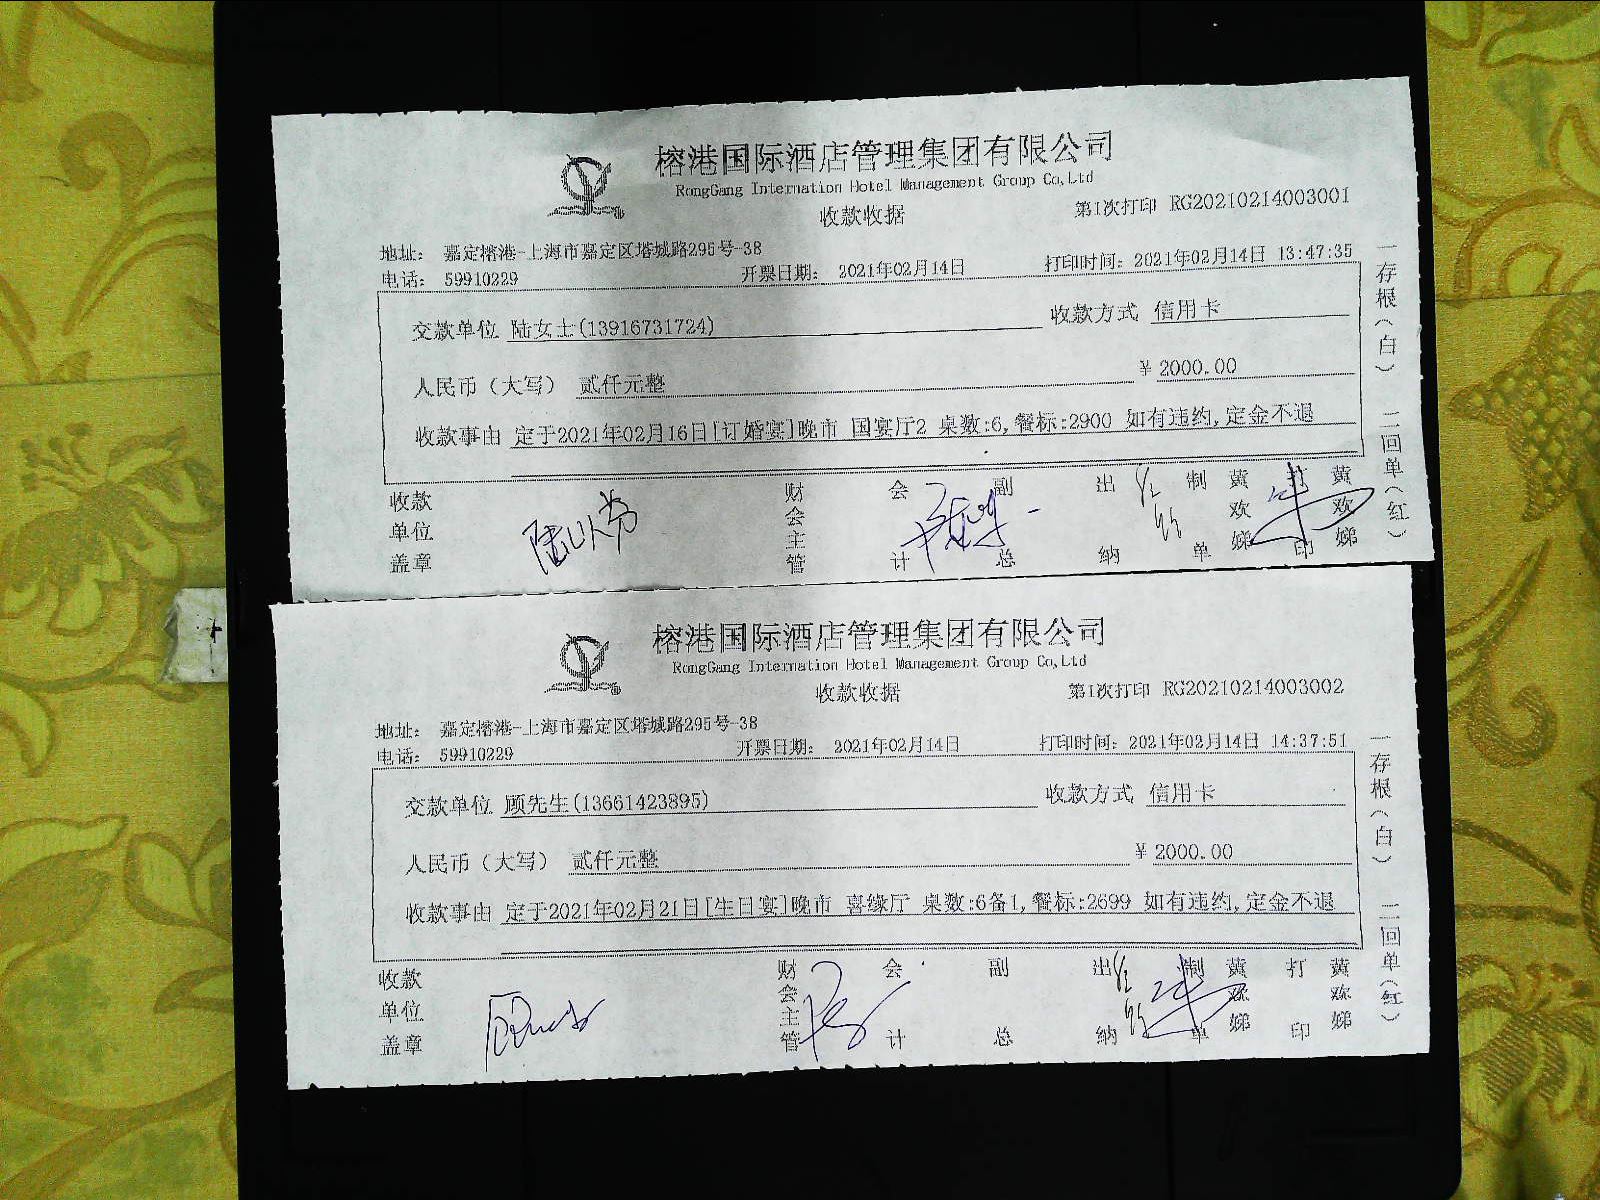 榕港国际酒店管理集团有限公司
RongGang Internation Hotel Management Group Co,Ltd
收款收据
第1次打印 RG20210214003001
地址： 嘉定榕港-上海市嘉定区塔城路295号-38
电话： 59910229 开票日期： 2021年02月14日 打印时间：2021年02月14日 13:47:35
交款单位 陆女士(13916731724) 收款方式 信用卡
人民币（大写） 贰仟元整 ¥ 2000.00
收款事由 定于2021年02月16日[订婚宴]晚市 国宴厅2 桌数:6,餐标:2900 如有违约,定金不退
收款单位盖章 财会主管 会计 副总 出纳 制单 黄欢娣 打印 黄欢娣
一存根（白） 二回单（红）
榕港国际酒店管理集团有限公司
RongGang Internation Hotel Management Group Co,Ltd
收款收据
第1次打印 RG20210214003002
地址： 嘉定榕港-上海市嘉定区塔城路295号-38
电话： 59910229 开票日期： 2021年02月14日 打印时间：2021年02月14日 14:37:51
交款单位 顾先生(13661423895) 收款方式 信用卡
人民币（大写） 贰仟元整 ¥ 2000.00
收款事由 定于2021年02月21日[生日宴]晚市 喜缘厅 桌数:6备1,餐标:2699 如有违约,定金不退
收款单位盖章 财会主管 会计 副总 出纳 制单 黄欢娣 打印 黄欢娣
一存根（白） 二回单（红）